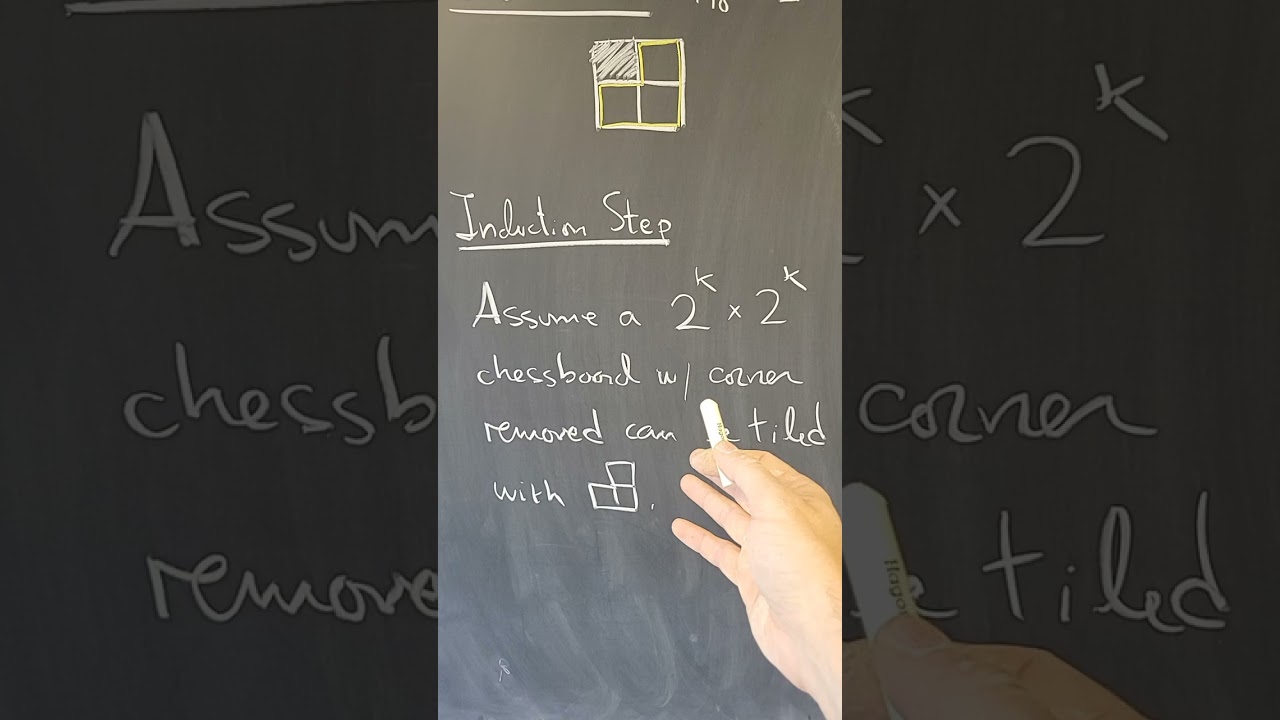 Induction Step
Assume a 2^k × 2^k
chessboard w/ corner
removed can be tiled
with .